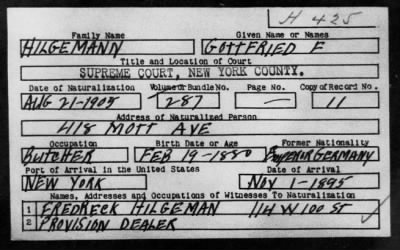 H 425
Family Name Given Name or Names
HILGEMANN GOTTFRIED F
Title and Location of Court
SUPREME COURT, NEW YORK COUNTY.
Date of Naturalization Volume or Bundle No. Page No. Copy of Record No.
AUG 21-1905 287 — 11
Address of Naturalized Person
418 MOTT AVE
Occupation Birth Date or Age Former Nationality
BUTCHER FEB 19-1880 Emperor GERMANY
Port of Arrival in the United States Date of Arrival
NEW YORK NOV 1-1895
Names, Addresses and Occupations of Witnesses To Naturalization
1 FREDRECK HILGEMAN 114 W 100 St
2 PROVISION DEALER